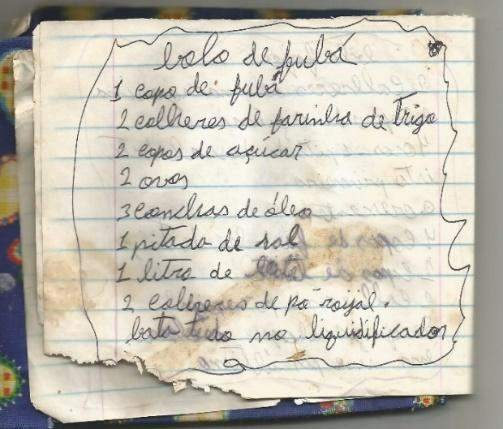 bolo de fubá
1 copo de fubá
2 colheres de farinha de trigo
2 copos de açucar
2 ovos
3 conchas de óleo
1 pitada de sal
1 litro de leite
2 colheres de pó roijal.
bata tudo no liquidificador